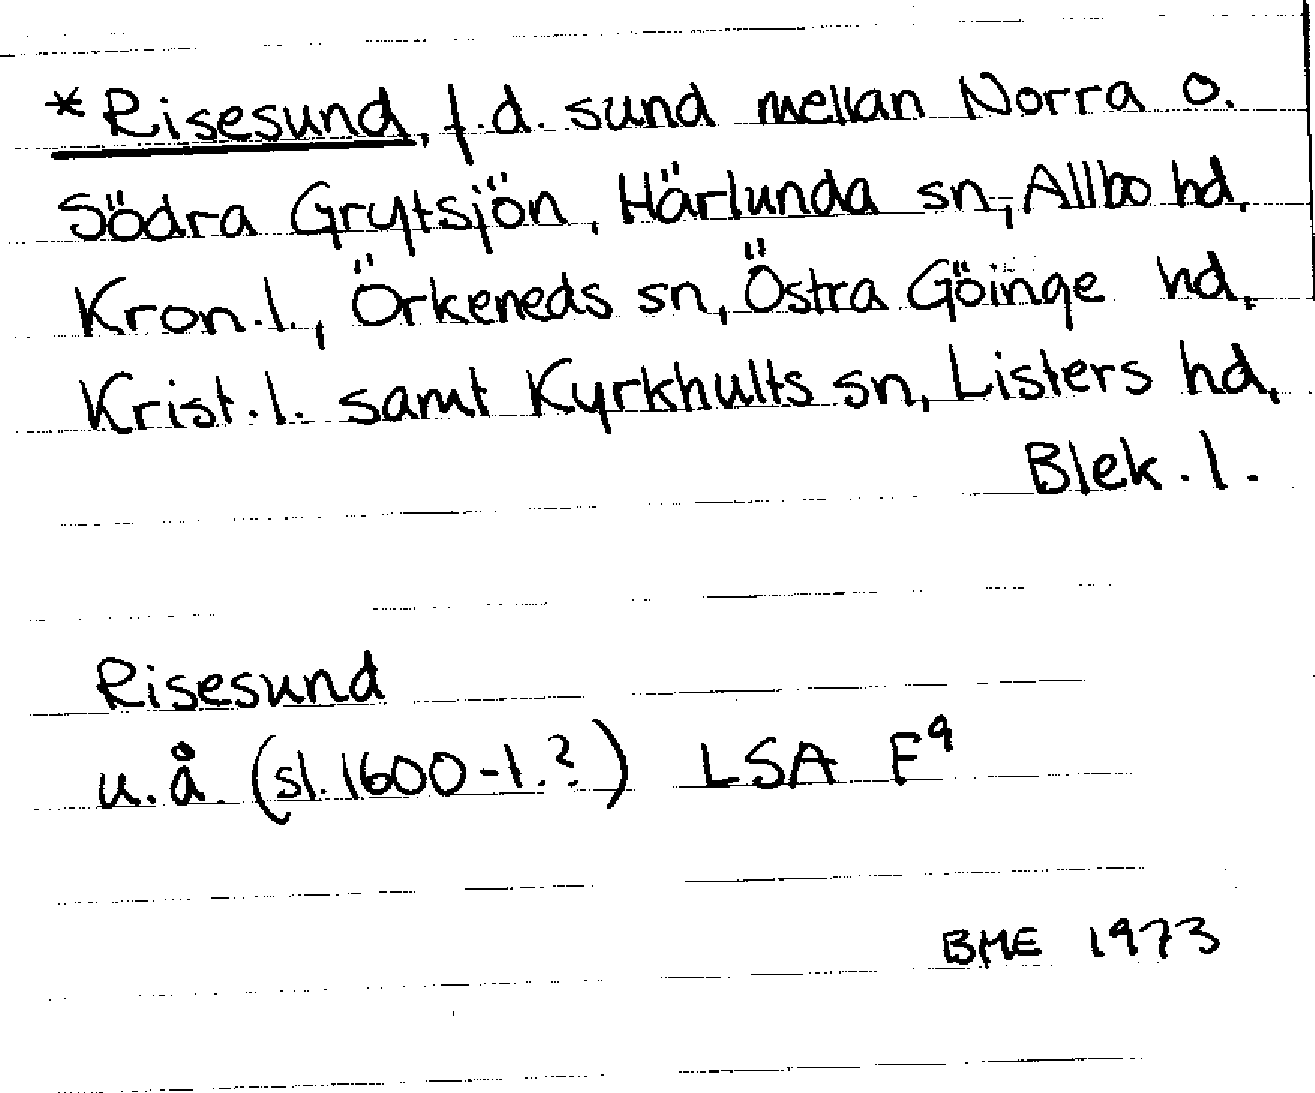 *Risesund, f.d. sund mellan Norra o.
Södra Grytsjön, Härlunda sn, Allbo hd,
Kron.l., Örkeneds sn, Östra Göinge hd,
Krist.l. samt Kyrkhults sn, Listers hd,
Blek.l.
Risesund
u.å. (sl. 1600-l.?) LSA F9
BME 1973